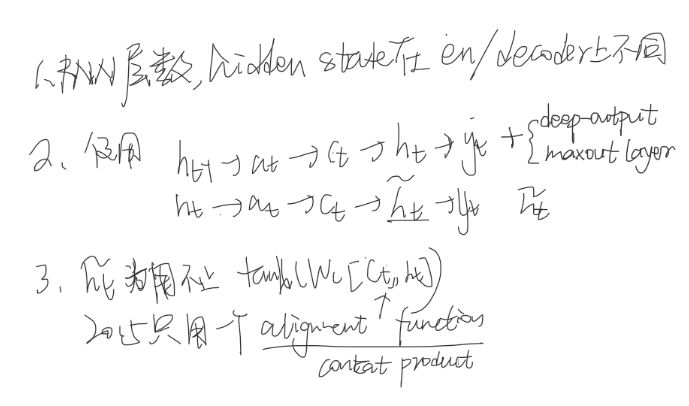 1、RNN层数,hidden state在 en/decoder上不同
2、使用 h_{t-1} → a_t → c_t → h_t → y_t + { deep-output
maxout layer
h_t → a_t → c_t → h̃_t → y_t h̃_t
3. h̃_t tanh(W_c[c_t,h_t])
2015只用一个 alignment function
concat product